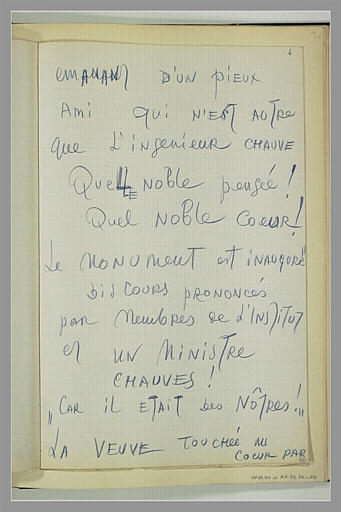 6
emanant D'un pieux
Ami qui n'est autre
que L'ingenieur chauve
Quelle noble pensée!
Quel noble Coeur!
Le Monument est inauguré
Discours prononcés
par Membres de L'Institut
et un Ministre
chauves!
"Car il etait des Nôtres!"
La Veuve touchée au
Coeur par